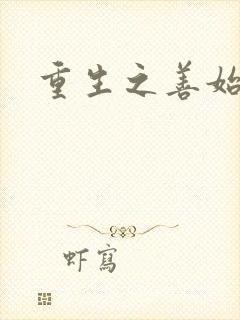 重生之善始
虾寫